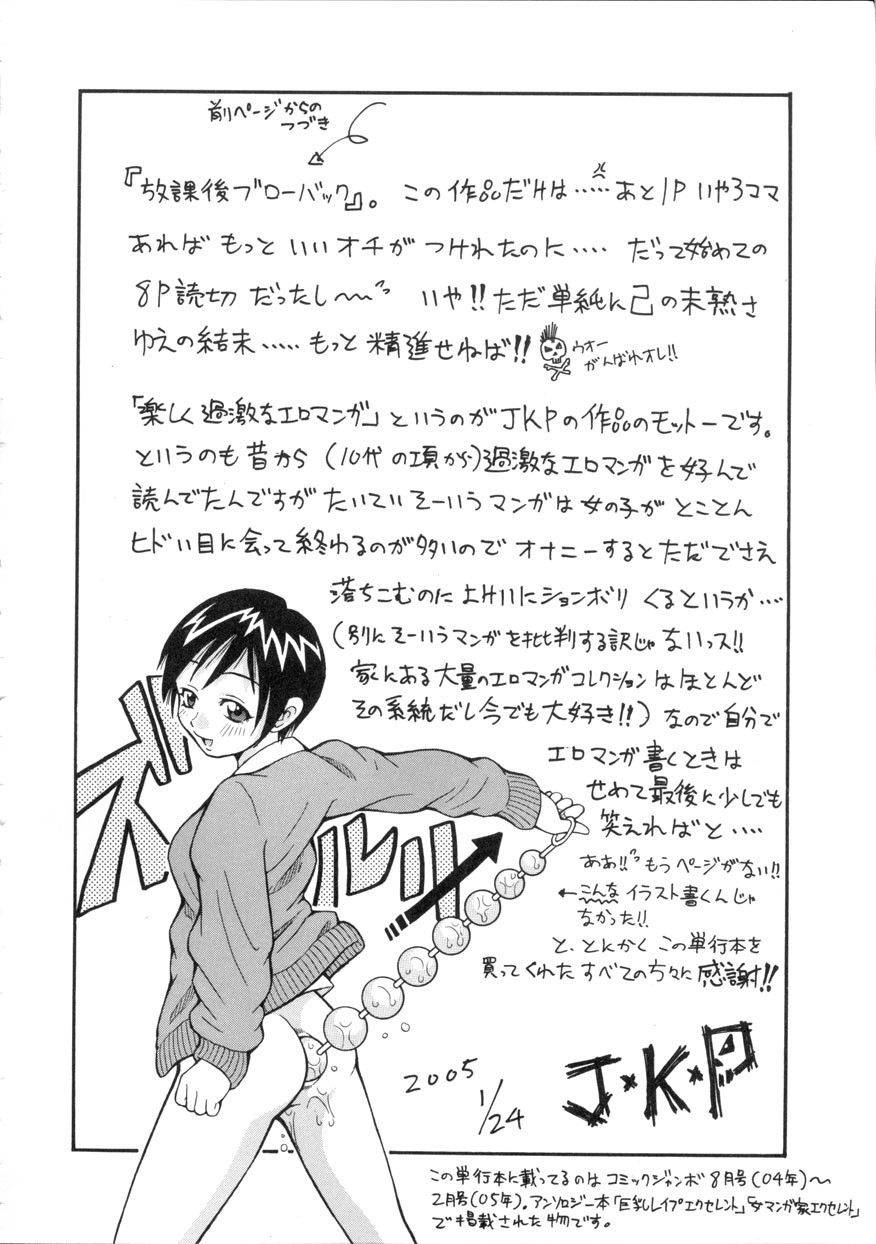 前ページからの
つづき
『放課後ブローバック』。この作品だけは……あと1Pいやろママ
あればもっといいオチがつけれたのに…‥だって始めての
8P読切だったし〜〜っ いや!!ただ単純に己の未熟さ
ゆえの結末……もっと精進せねば!!
ウオー
がんばれオレ!!
「楽しく過激なエロマンガ」というのがJKPの作品のモットーです。
というのも昔から(10代の項から)過激なエロマンガを好んで
読んでたんですがたいていそーいうマンガは女の子がとことん
ヒドい目に会って終わるのが多いのでオナニーするとただでさえ
落ちこむのによけいにションボリくるというか…‥
(別にそーいうマンガを批判する訳じゃないっス!!
家にある大量のエロマンガコレクションはほとんど
その系統だし今でも大好き!!)なので自分で
エロマンガ書くときは
せめて最後に少しでも
笑えればと…‥
ああ!!っもうページがない!!
←こんなイラスト書くんじゃ
なかった!!
と、とにかくこの単行本を
買ってくれたすべての方々に感謝!!
ズルルリ
2005
1/24
J★K★P
この単行本に載ってるのはコミックジャンボ8月号(04年)〜
2月号(05年)。アンソロジー本「巨乳レイプエクセレント」「女マンガ家エクセレント」
で掲載された物です。